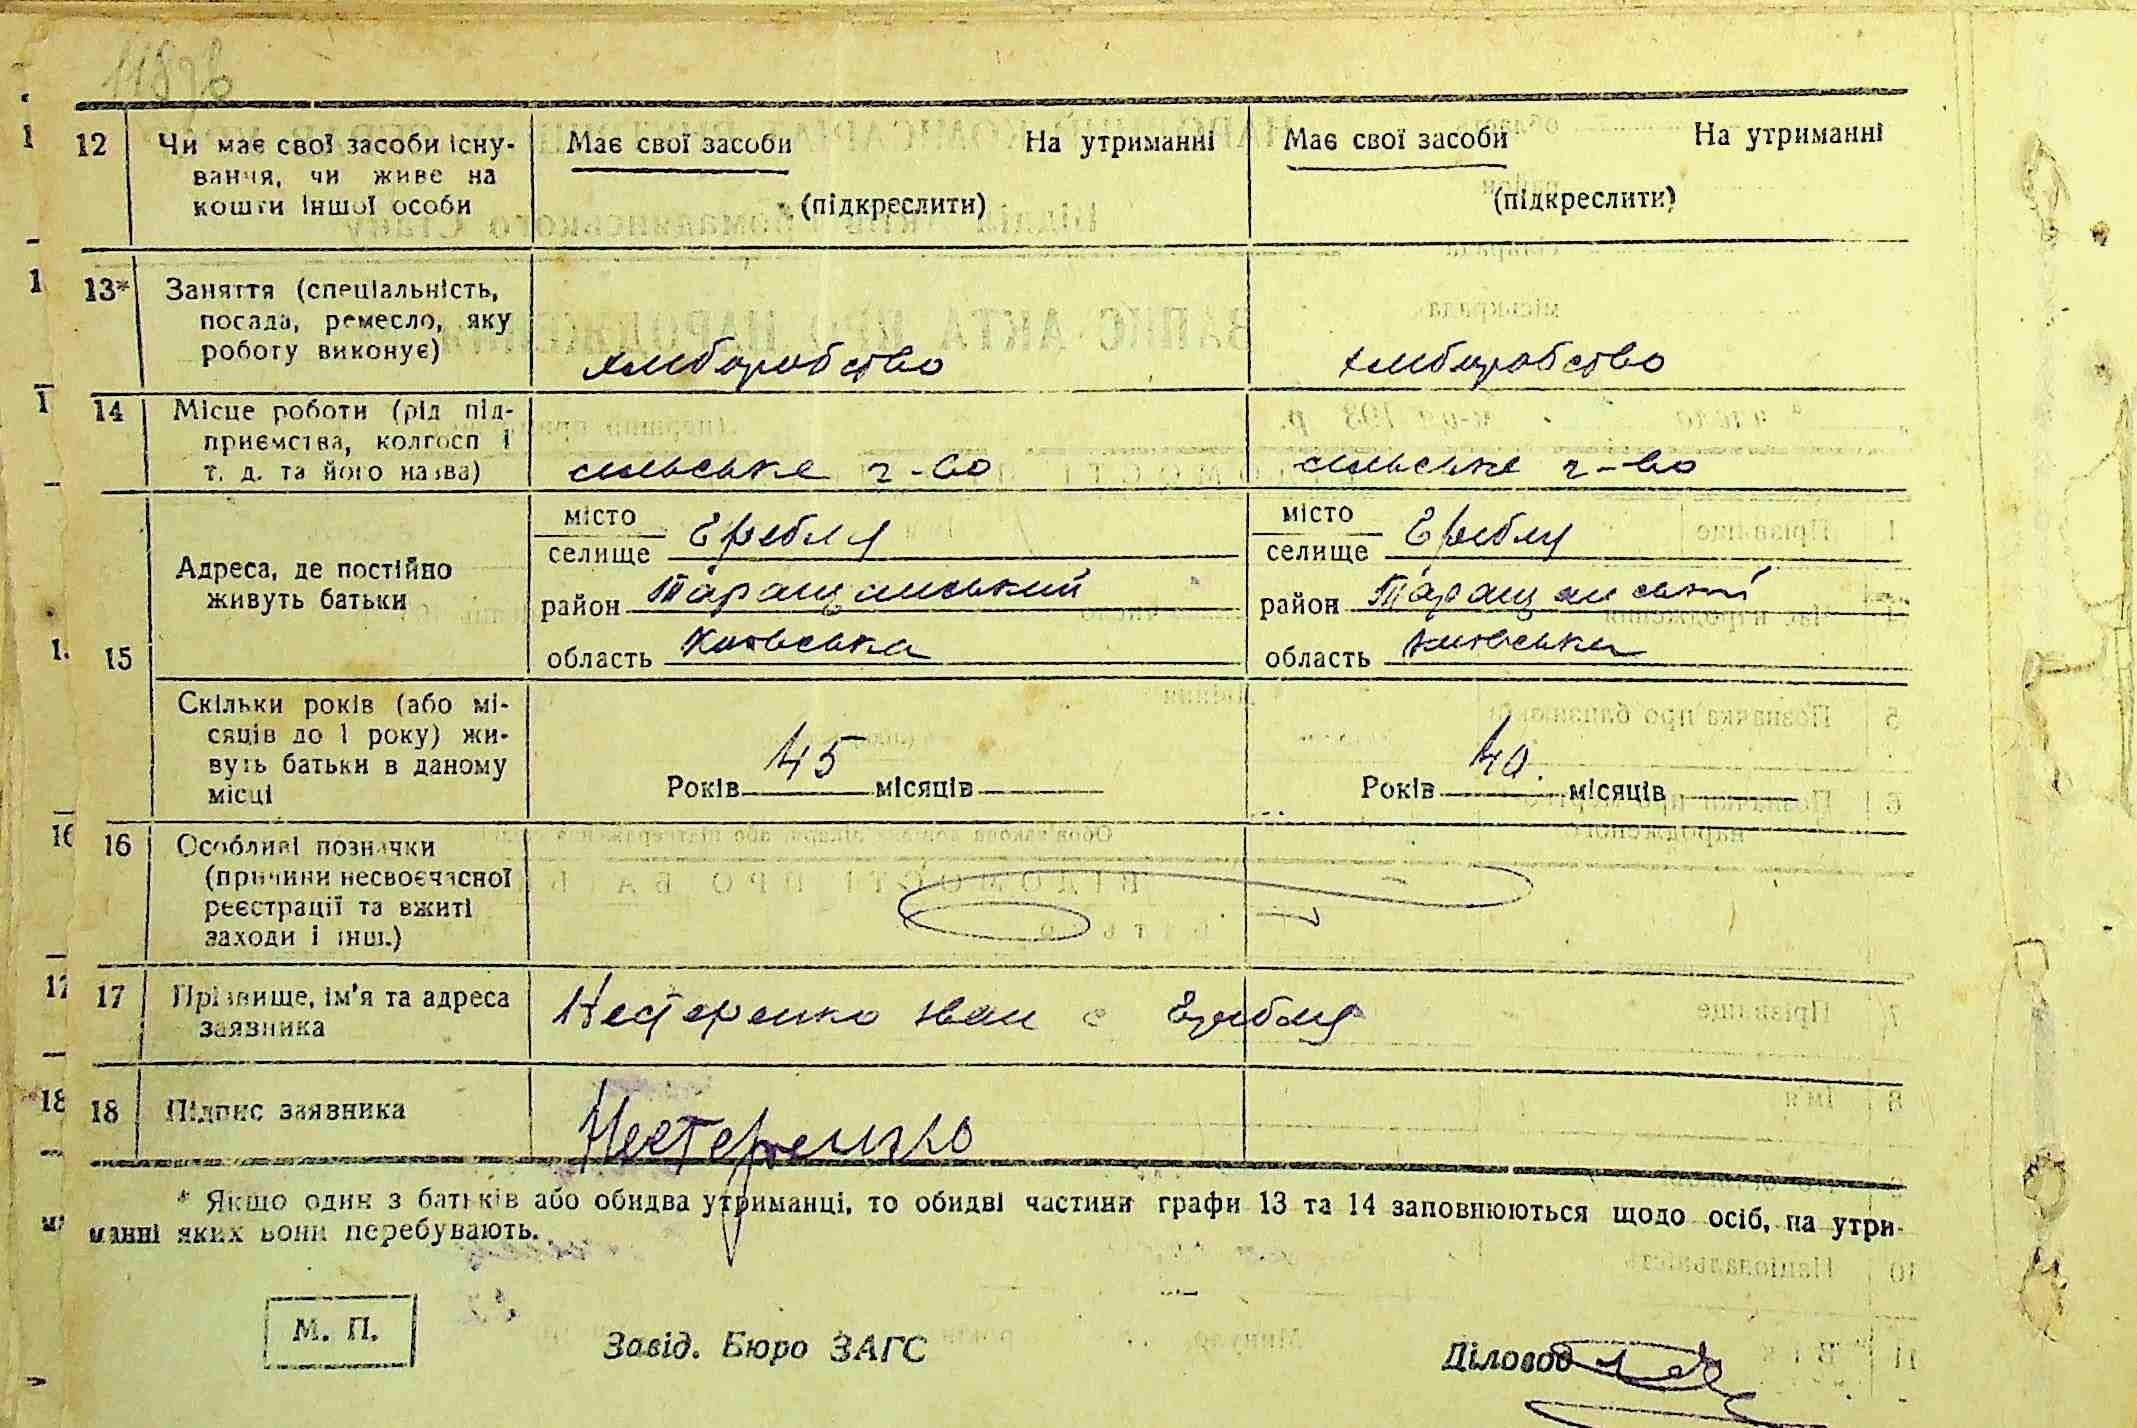 12 Чи має свої засоби існу- Має свої засоби На утриманні Має свої засоби На утриманні
вання, чи живе на
кошти іншої особи (підкреслити) (підкреслити)
13* Заняття (спеціальність,
посада, ремесло, яку
роботу виконує) хліборобство хліборобство
14 Місце роботи (рід під-
приємства, колгосп і
т. д. та його назва) сільське г-во сільське г-во
15 Адреса, де постійно
живуть батьки
місто місто
селище Гребля селище Гребля
район Таращанський район Таращанський
область Київська область Київська
Скільки років (або мі-
сяців до 1 року) жи-
вуть батьки в даному
місці Років 45 місяців Років 40 місяців
16 Особливі позначки
(причини несвоєчасної
реєстрації та вжиті
заходи і інш.)
17 Прізвище, ім'я та адреса
заявника Нестеренко Іван с Гребля
18 Підпис заявника Нестеренко
* Якщо один з батьків або обидва утриманці, то обидві частини графи 13 та 14 заповнюються щодо осіб, на утри-
манні яких вони перебувають.
М. П. Завід. Бюро ЗАГС Діловод